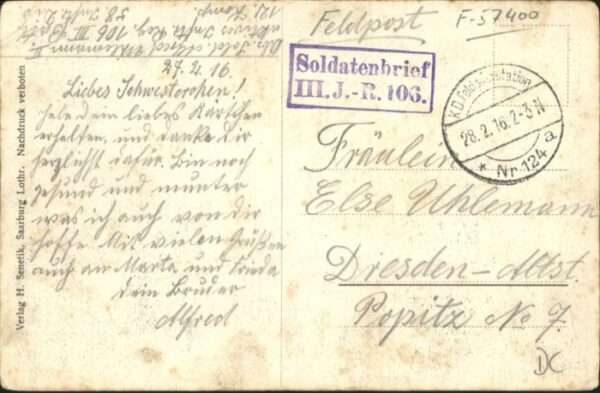 Abs. Sold. Alfred Uhlemann II.
aktives Inftr. Reg. 106 III. Batl.
12. Komp. 58. Inftr. Div.
27.2.16.
Liebes Schwesterchen!
habe dein liebes Kärtchen
erhalten, und danke dir
herzlichst dafür. Bin noch
gesund und munter
was ich auch von dir
hoffe. Mit vielen Grüßen
auch an Marta und Frieda
dein Bruder
Alfred
Verlag H. Senetik, Saarburg Lothr. Nachdruck verboten
Feldpost
F-57400
Soldatenbrief
III. J.-R. 106.
K.D. Feldpoststation
28.2.16.2-3N
* Nr. 124 a
Fräulein
Else Uhlemann
Dresden-Altst.
Popitz No 7.